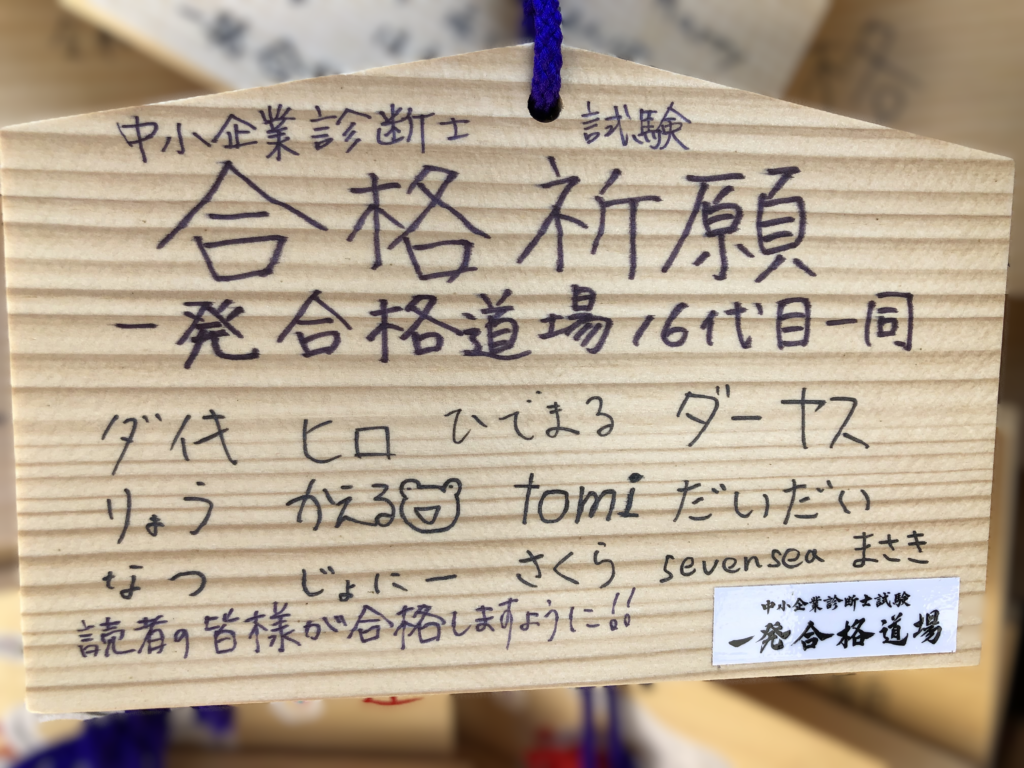 中小企業診断士 試験
合格祈願
一発合格道場16代目一同
ダイキ ヒロ ひでまる ダーヤス
りょう かえる tomi だいだい
なつ じょにー さくら sevensea まさき
読者の皆様が合格しますように!!
中小企業診断士試験
一発合格道場